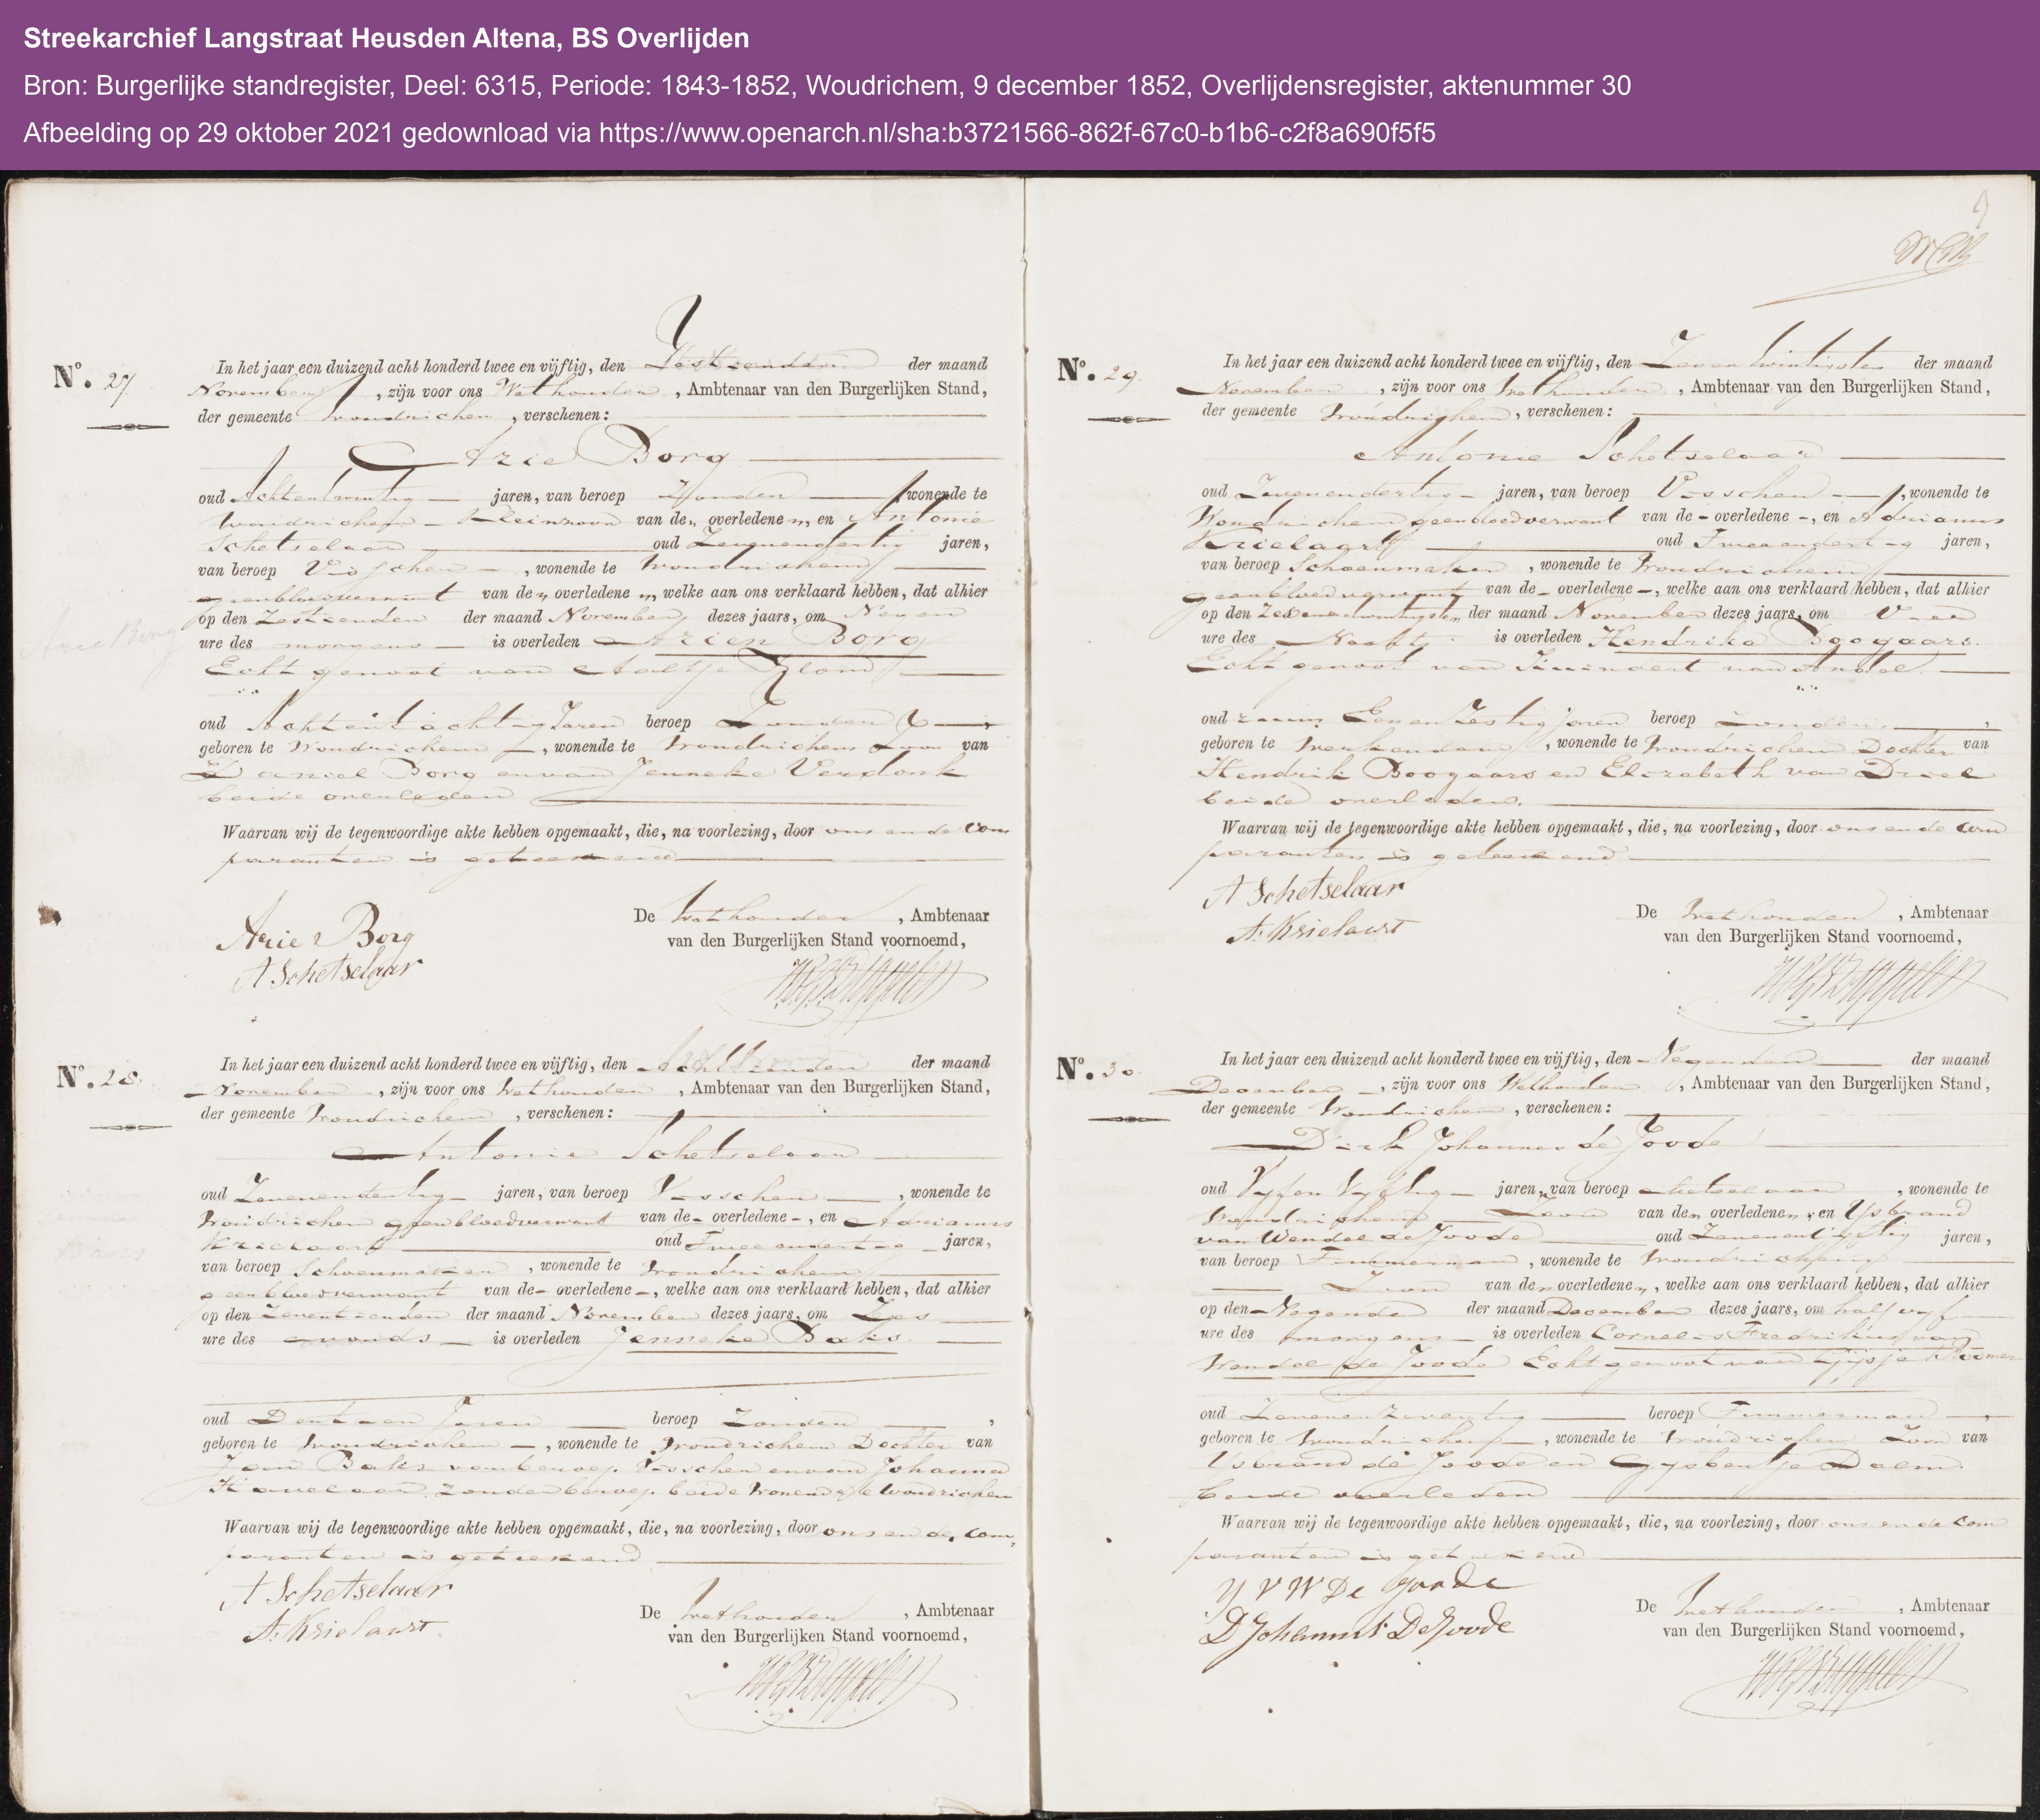 Streekarchief Langstraat Heusden Altena, BS Overlijden
Bron: Burgerlijke standregister, Deel: 6315, Periode: 1843-1852, Woudrichem, 9 december 1852, Overlijdensregister, aktenummer 30
Afbeelding op 29 oktober 2021 gedownload via https://www.openarch.nl/sha:b3721566-862f-67c0-b1b6-c2f8a690f5f5
No. 27.
In het jaar een duizend acht honderd twee en vijftig, den Zestienden der maand
November, zijn voor ons Wethouder, Ambtenaar van den Burgerlijken Stand,
der gemeente Woudrichem, verschenen:
Arie Borg
oud Achtentwintig jaren, van beroep Zonder wonende te
Woudrichem Kleinzoon van den overledenen, en Antonie
Schetselaar oud Zevenendertig jaren,
van beroep Visscher, wonende te Woudrichem
geenbloedverwant van den overledenen, welke aan ons verklaard hebben, dat alhier
op den Zestienden der maand November dezes jaars, om Negen
ure des morgens is overleden Arien Borg
Echtgenoot van Aaltje
oud Achtentachtig Jaren beroep Zonder
geboren te Woudrichem, wonende te Woudrichem Zoon van
Daniel Borg en van Jenneke Verdonk
beide overleden
Waarvan wij de tegenwoordige akte hebben opgemaakt, die, na voorlezing, door ons en de Com
paranten is geteekend
Arie Borg
A Schetselaar
De Wethouder, Ambtenaar
van den Burgerlijken Stand voornoemd,
No. 28.
In het jaar een duizend acht honderd twee en vijftig, den Achttienden der maand
November, zijn voor ons Wethouder, Ambtenaar van den Burgerlijken Stand,
der gemeente Woudrichem, verschenen:
Antonie Schetselaar
oud Zevenendertig jaren, van beroep Visscher, wonende te
Woudrichem geenbloedverwant van de overledene, en Adrianus
Krielaart oud Tweeendertig jaren,
van beroep Schoenmaker, wonende te Woudrichem
geenbloedverwant van de overledene, welke aan ons verklaard hebben, dat alhier
op den Zeventienden der maand November dezes jaars, om Zes
ure des avonds is overleden Jenneke Baks.
oud Dertien Jaren beroep Zonder,
geboren te Woudrichem, wonende te Woudrichem Dochter van
Jan Baks van beroep Visscher en van Johanna
Havelaar zonder beroep beide Wonende te Woudrichem
Waarvan wij de tegenwoordige akte hebben opgemaakt, die, na voorlezing, door ons en de Com,
paranten is geteekend
A Schetselaar
A. Krielaart.
De Wethouder, Ambtenaar
van den Burgerlijken Stand voornoemd,
9
No. 29.
In het jaar een duizend acht honderd twee en vijftig, den Zevenentwintigsten der maand
November, zijn voor ons Wethouder, Ambtenaar van den Burgerlijken Stand,
der gemeente Woudrighem, verschenen:
Antonie Schetselaar
oud Zevenendertig jaren, van beroep Visscher, wonende te
Woudrichem geenbloedverwant van de overledene, en Adrianus
Krielaart oud Tweeendertig jaren,
van beroep Schoenmaker, wonende te Woudrichem
geenbloedverwant van de overledene, welke aan ons verklaard hebben, dat alhier
op den Zesenentwintigsten der maand November dezes jaars, om Vier
ure des Nachts is overleden Hendrika Boogaars.
Echtgenoot van van Andel.
oud ruim Eenenzestig jaren beroep Zonder,
geboren te Werkendam, wonende te Woudrichem Dochter van
Hendrik Boogaars en Elizabeth van Driel
beide overleden.
Waarvan wij de tegenwoordige akte hebben opgemaakt, die, na voorlezing, door ons en de Com
paranten is geteekend
A Schetselaar
A. Krielaart
De Wethouder, Ambtenaar
van den Burgerlijken Stand voornoemd,
No. 30.
In het jaar een duizend acht honderd twee en vijftig, den Negenden der maand
December, zijn voor ons Wethouder, Ambtenaar van den Burgerlijken Stand,
der gemeente Woudrichem, verschenen:
Dirk Johannes de Joode
oud Vyfen Vyftig jaren, van beroep Metselaar, wonende te
Woudrichem Zoon van den overledenen, en Ysbrand
van Wendel de Joode oud Zevenenvyftig jaren,
van beroep Timmerman, wonende te Woudrichem
Zoon van den overledenen, welke aan ons verklaard hebben, dat alhier
op den Negenden der maand December dezes jaars, om half vyf
ure des morgens is overleden Cornelis Fredrikus van
Wendel de Joode Echtgenoot van Gijsje Roomer
oud Zevenenzeventig beroep Timmerman,
geboren te Woudrichem, wonende te Woudrichem Zoon van
Ysbrand de Joode en Gysbertje Daem.
beide overleden
Waarvan wij de tegenwoordige akte hebben opgemaakt, die, na voorlezing, door ons en de Com
paranten is geteekend
Y V W De Joode
D Johannes De Joode
De Wethouder, Ambtenaar
van den Burgerlijken Stand voornoemd,